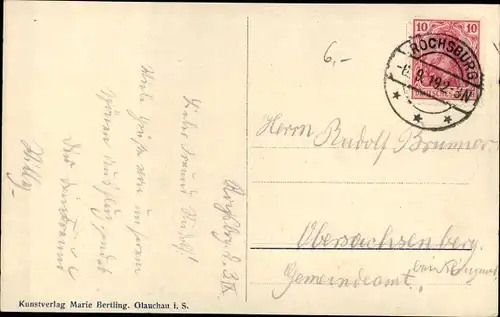 6,-
10 10
ROCHSBURG
Herrn Rudolf Brunner
Obersachsenberg
Gemeindeamt.
Lieber Freund Rudolf!
Viele Grüße von unserem
schönen Ausflug sendet
Dir
Willy
Kunstverlag Marie Bertling. Glauchau i. S.